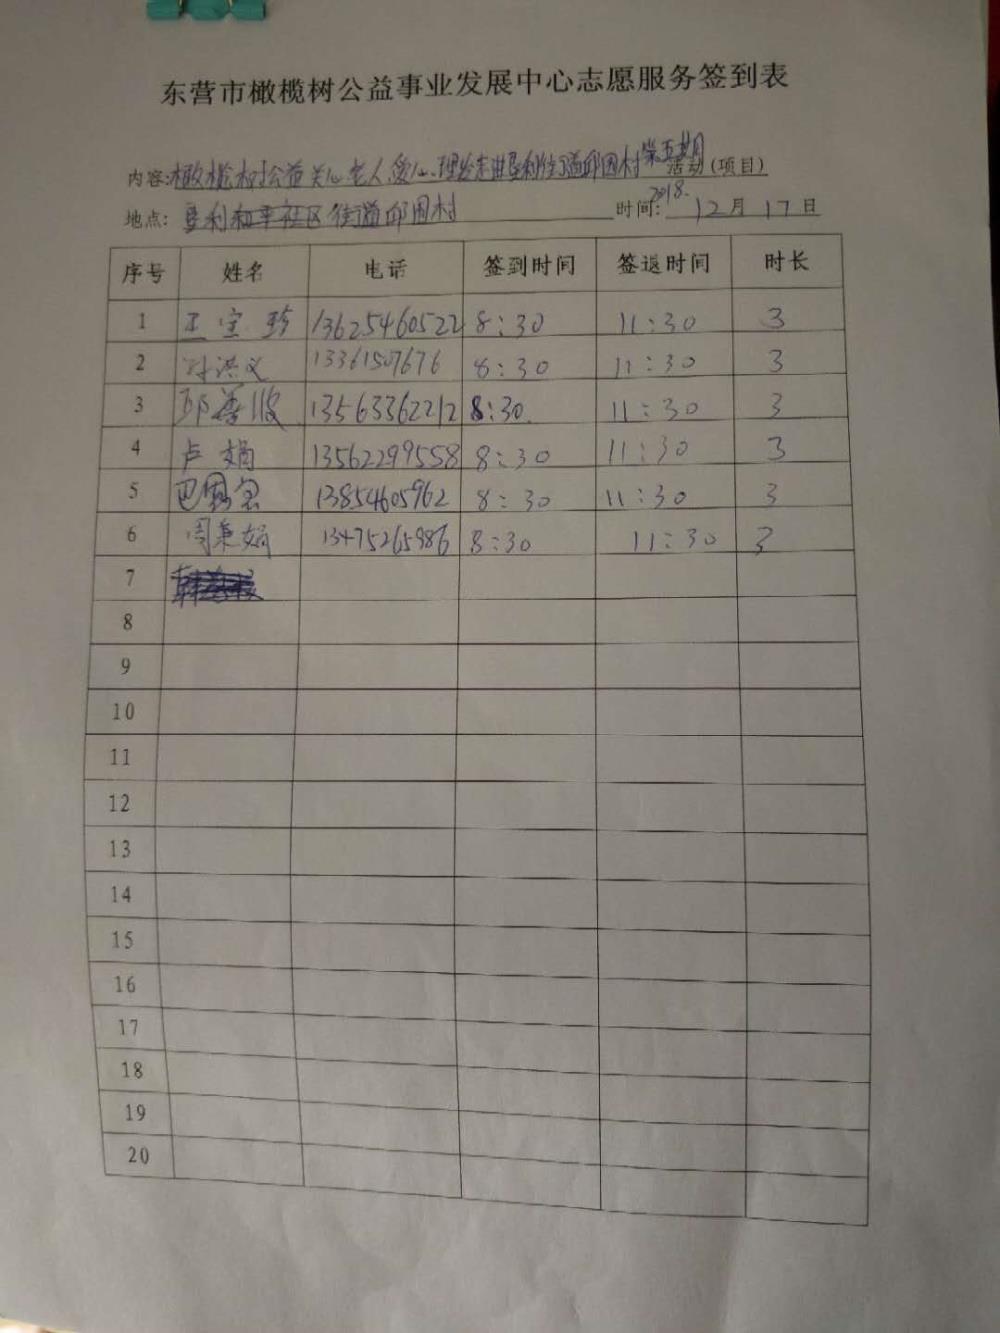 东营市橄榄树公益事业发展中心志愿服务签到表
内容:橄榄树公益关心老人,爱心理发走进垦利街道邱围村第五期活动(项目)
地点: 垦利和平社区街道邱围村 时间: 2018. 12月17日
序号 姓名 电话 签到时间 签退时间 时长
1 王宝珍 13625460522 8:30 11:30 3
2 孙洪义 13361507676 8:30 11:30 3
3 邱 波 13563362212 8:30 11:30 3
4 卢娟 13562299558 8:30 11:30 3
5 巴 13854605962 8:30 11:30 3
6 周秉娟 13475265986 8:30 11:30 3
7
8
9
10
11
12
13
14
15
16
17
18
19
20